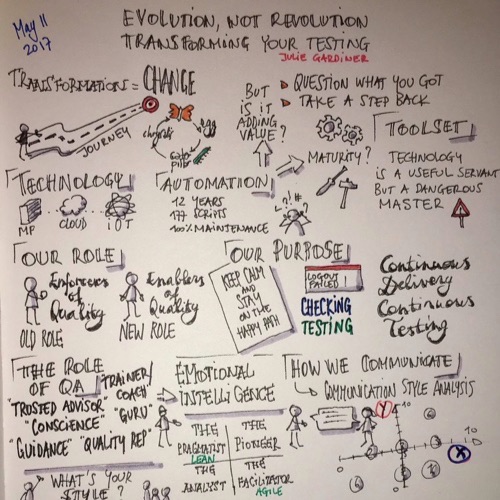 May 11
2017
EVOLUTION, NOT REVOLUTION
TRANSFORMING YOUR TESTING
JULIE GARDINER
TRANSFORMATION = CHANGE
JOURNEY
BUT
IS IT
ADDING
VALUE?
QUESTION WHAT YOU GOT
TAKE A STEP BACK
MATURITY?
TOOLSET
TECHNOLOGY
IS A USEFUL SERVANT
BUT A DANGEROUS
MASTER
TECHNOLOGY
MF
CLOUD
IOT
AUTOMATION
12 YEARS
177 SCRIPTS
100% MAINTENANCE
OUR ROLE
Enforcers
of
Quality
OLD ROLE
Enablers
of
Quality
NEW ROLE
OUR PURPOSE
KEEP CALM
AND
STAY
ON THE
HAPPY PATH
LOGOUT
FAILED!
CHECKING
TESTING
Continuous
Delivery
Continuous
Testing
THE ROLE
OF QA
TRAINER/
COACH
"TRUSTED ADVISOR"
"GURU"
"CONSCIENCE"
"GUIDANCE" "QUALITY REP"
WHAT'S YOUR
STYLE?
EMOTIONAL
INTELLIGENCE
THE
PRAGMATIST
LEAN
THE
PIONEER
THE
ANALYST
THE
FACILITATOR
AGILE
HOW WE COMMUNICATE
COMMUNICATION STYLE ANALYSIS
Y
10
10
X